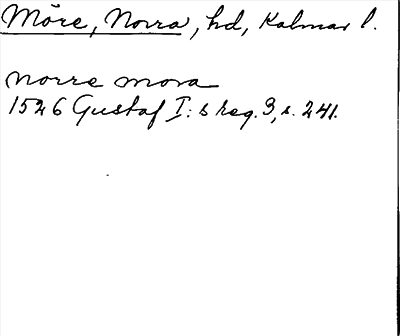 Möre, Norra, hd, Kalmar l.
norre mora
1526 Gustaf I:s reg. 3, s. 241.